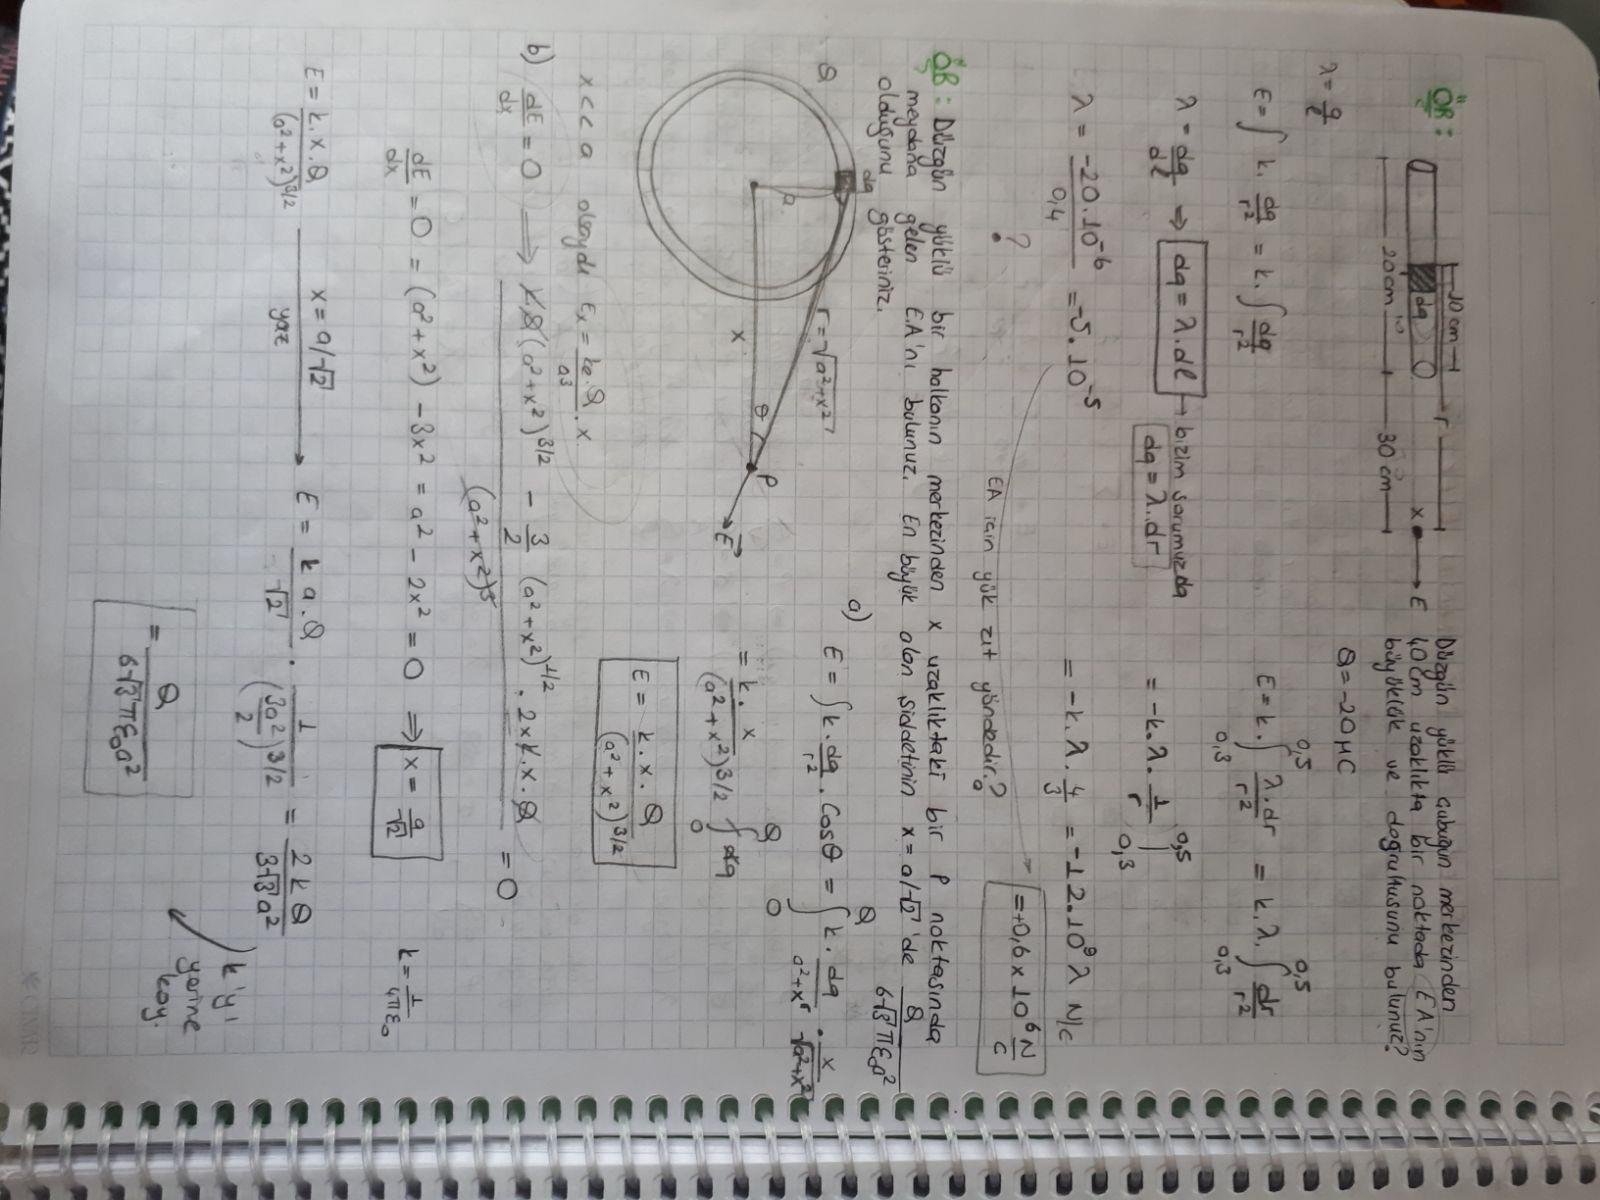 ÖR:
10 cm
r
dq
x
E
20 cm
30 cm
Düzgün yüklü çubuğun merkezinden
40cm uzaklıkta bir noktada EA'nın
büyüklük ve doğrultusunu bulunuz?
Q = -20 μC
λ = q/l
E = ∫ k. dq/r² = k. ∫ dq/r²
λ = dq/dl ⇒ dq = λ.dl → bizim sorumuzda
dq = λ.dr
λ = -20.10⁻⁶/0,4 = -5.10⁻⁵
?
E = k. ∫_{0,3}^{0,5} λ.dr/r² = k.λ. ∫_{0,3}^{0,5} dr/r²
= -k.λ. 1/r |_{0,3}^{0,5}
= -k.λ. 4/3 = -12.10⁹ λ N/C
= +0,6 x 10⁶ N/C
EA için yük zıt yöndedir.?
ÖR: Düzgün yüklü bir halkanın merkezinden x uzaklıktaki bir P noktasında
meydana gelen E.A'nı bulunuz. En büyük alan şiddetinin x = a/√2 'de Q/6√3πε₀a²
olduğunu gösteriniz.
dq
Q
a
r = √(a²+x²)
θ
P
x
E⃗
a) E = ∫ k. dq/r² . Cosθ = ∫_{0}^{Q} k. dq/a²+x² . x/√(a²+x²)
= k. x/(a²+x²)^{3/2} ∫_{0}^{Q} dq
E = k. x. Q/(a²+x²)^{3/2}
x<<a olsaydı Eₓ = ke.Q/a³ . x
b) dE/dx = 0 ⟹ kQ(a²+x²)^{3/2} - 3/2 (a²+x²)^{1/2} . 2x k.x.Q/(a²+x²)³ = 0
dE/dx = 0 = (a²+x²) - 3x² = a² - 2x² = 0 ⇒ x = a/√2
k = 1/4πε₀
E = k.x.Q/(a²+x²)^{3/2} x = a/√2 yaz → E = k a.Q/√2 . 1/(3a²/2)^{3/2} = 2kQ/3√3a²
k'yı
yerine
koy.
= Q/6√3πε₀a²